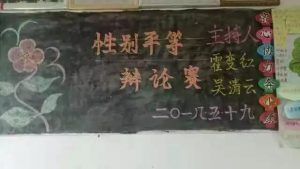 性别平等
辩论赛
主持人
霍变红
吴清云
二〇一八五十九